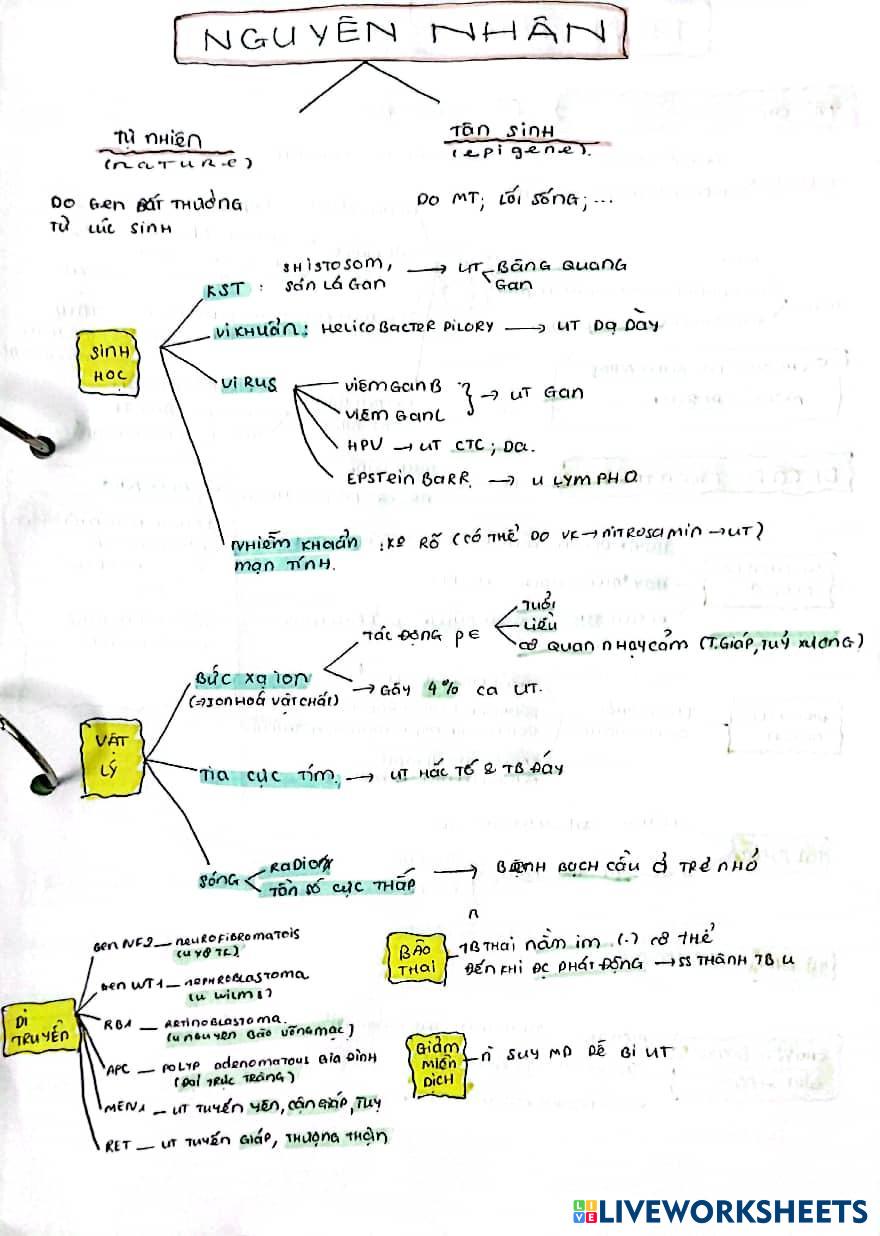 NGUYÊN NHÂN
TỰ NHIÊN
(NATURE)
TÂN SINH
(epigene).
DO Gen BẤT THƯỜNG
TỪ LÚC SINH
DO MT; LỐI SỐNG; ...
SINH HỌC
KST :
SHISTOSOM,
SÁN LÁ GAN
→ UT BÀNG QUANG
GAN
VI KHUẨN: HELICOBACTER PILORY → UT DẠ DÀY
VIRUS
VIÊM GAN B
VIÊM GAN C
} → UT GAN
HPV → UT CTC; DA.
EPSTEIN BARR. → U LYMPHO
NHIỄM KHUẨN
MẠN TÍNH.
: KO RÕ (CÓ THỂ DO VK → NITROSAMIN → UT)
VẬT LÝ
BỨC XẠ ION
(⇒ ION HOÁ VẬT CHẤT)
TÁC ĐỘNG p∈
TUỔI
LIỀU
CƠ QUAN NHẠY CẢM (T.GIÁP, TUỶ XƯƠNG)
→ GÂY 4% CA UT.
TIA CỰC TÍM, → UT HẮC TỐ & TB ĐÁY
SÓNG
RADIO
TẦN SỐ CỰC THẤP
→ BỆNH BẠCH CẦU Ở TRẺ NHỎ
n
DI TRUYỀN
Gen NF2 — NEUROFIBROMATOIS
Gen WT1 — NEPHROBLASTOMA
(U WILMS)
RB1 — ARTINOBLASTOMA.
(U NGUYÊN BÀO VÕNG MẠC)
APC — POLYP ADENOMATOUS GIA ĐÌNH
(ĐẠI TRỰC TRÀNG)
MEN1 — UT TUYẾN YÊN, CẬN GIÁP, TUỴ
RET — UT TUYẾN GIÁP, THƯỢNG THẬN
BÀO THAI
TB THAI NẰM IM (.) CƠ THỂ
ĐẾN KHI ĐC PHÁT ĐỘNG → SS THÀNH TB U
GIẢM MIỄN DỊCH
n̄ SUY MD DỄ BỊ UT
LIVEWORKSHEETS